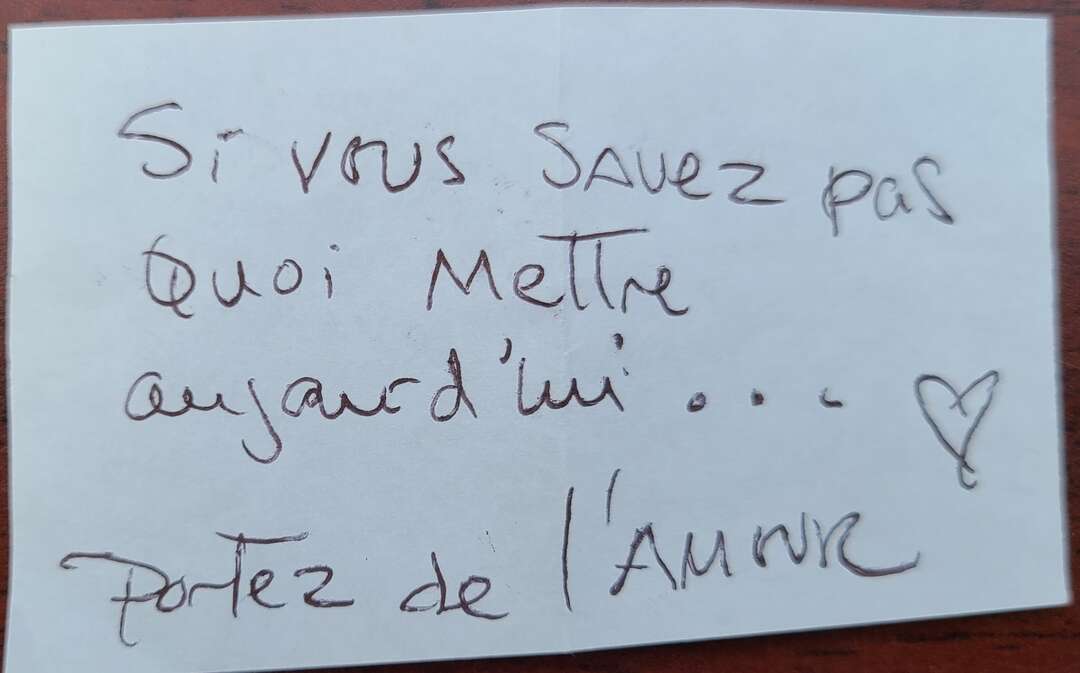 Si vous savez pas
Quoi Mettre
aujourd'hui...
Portez de l'AMOUR